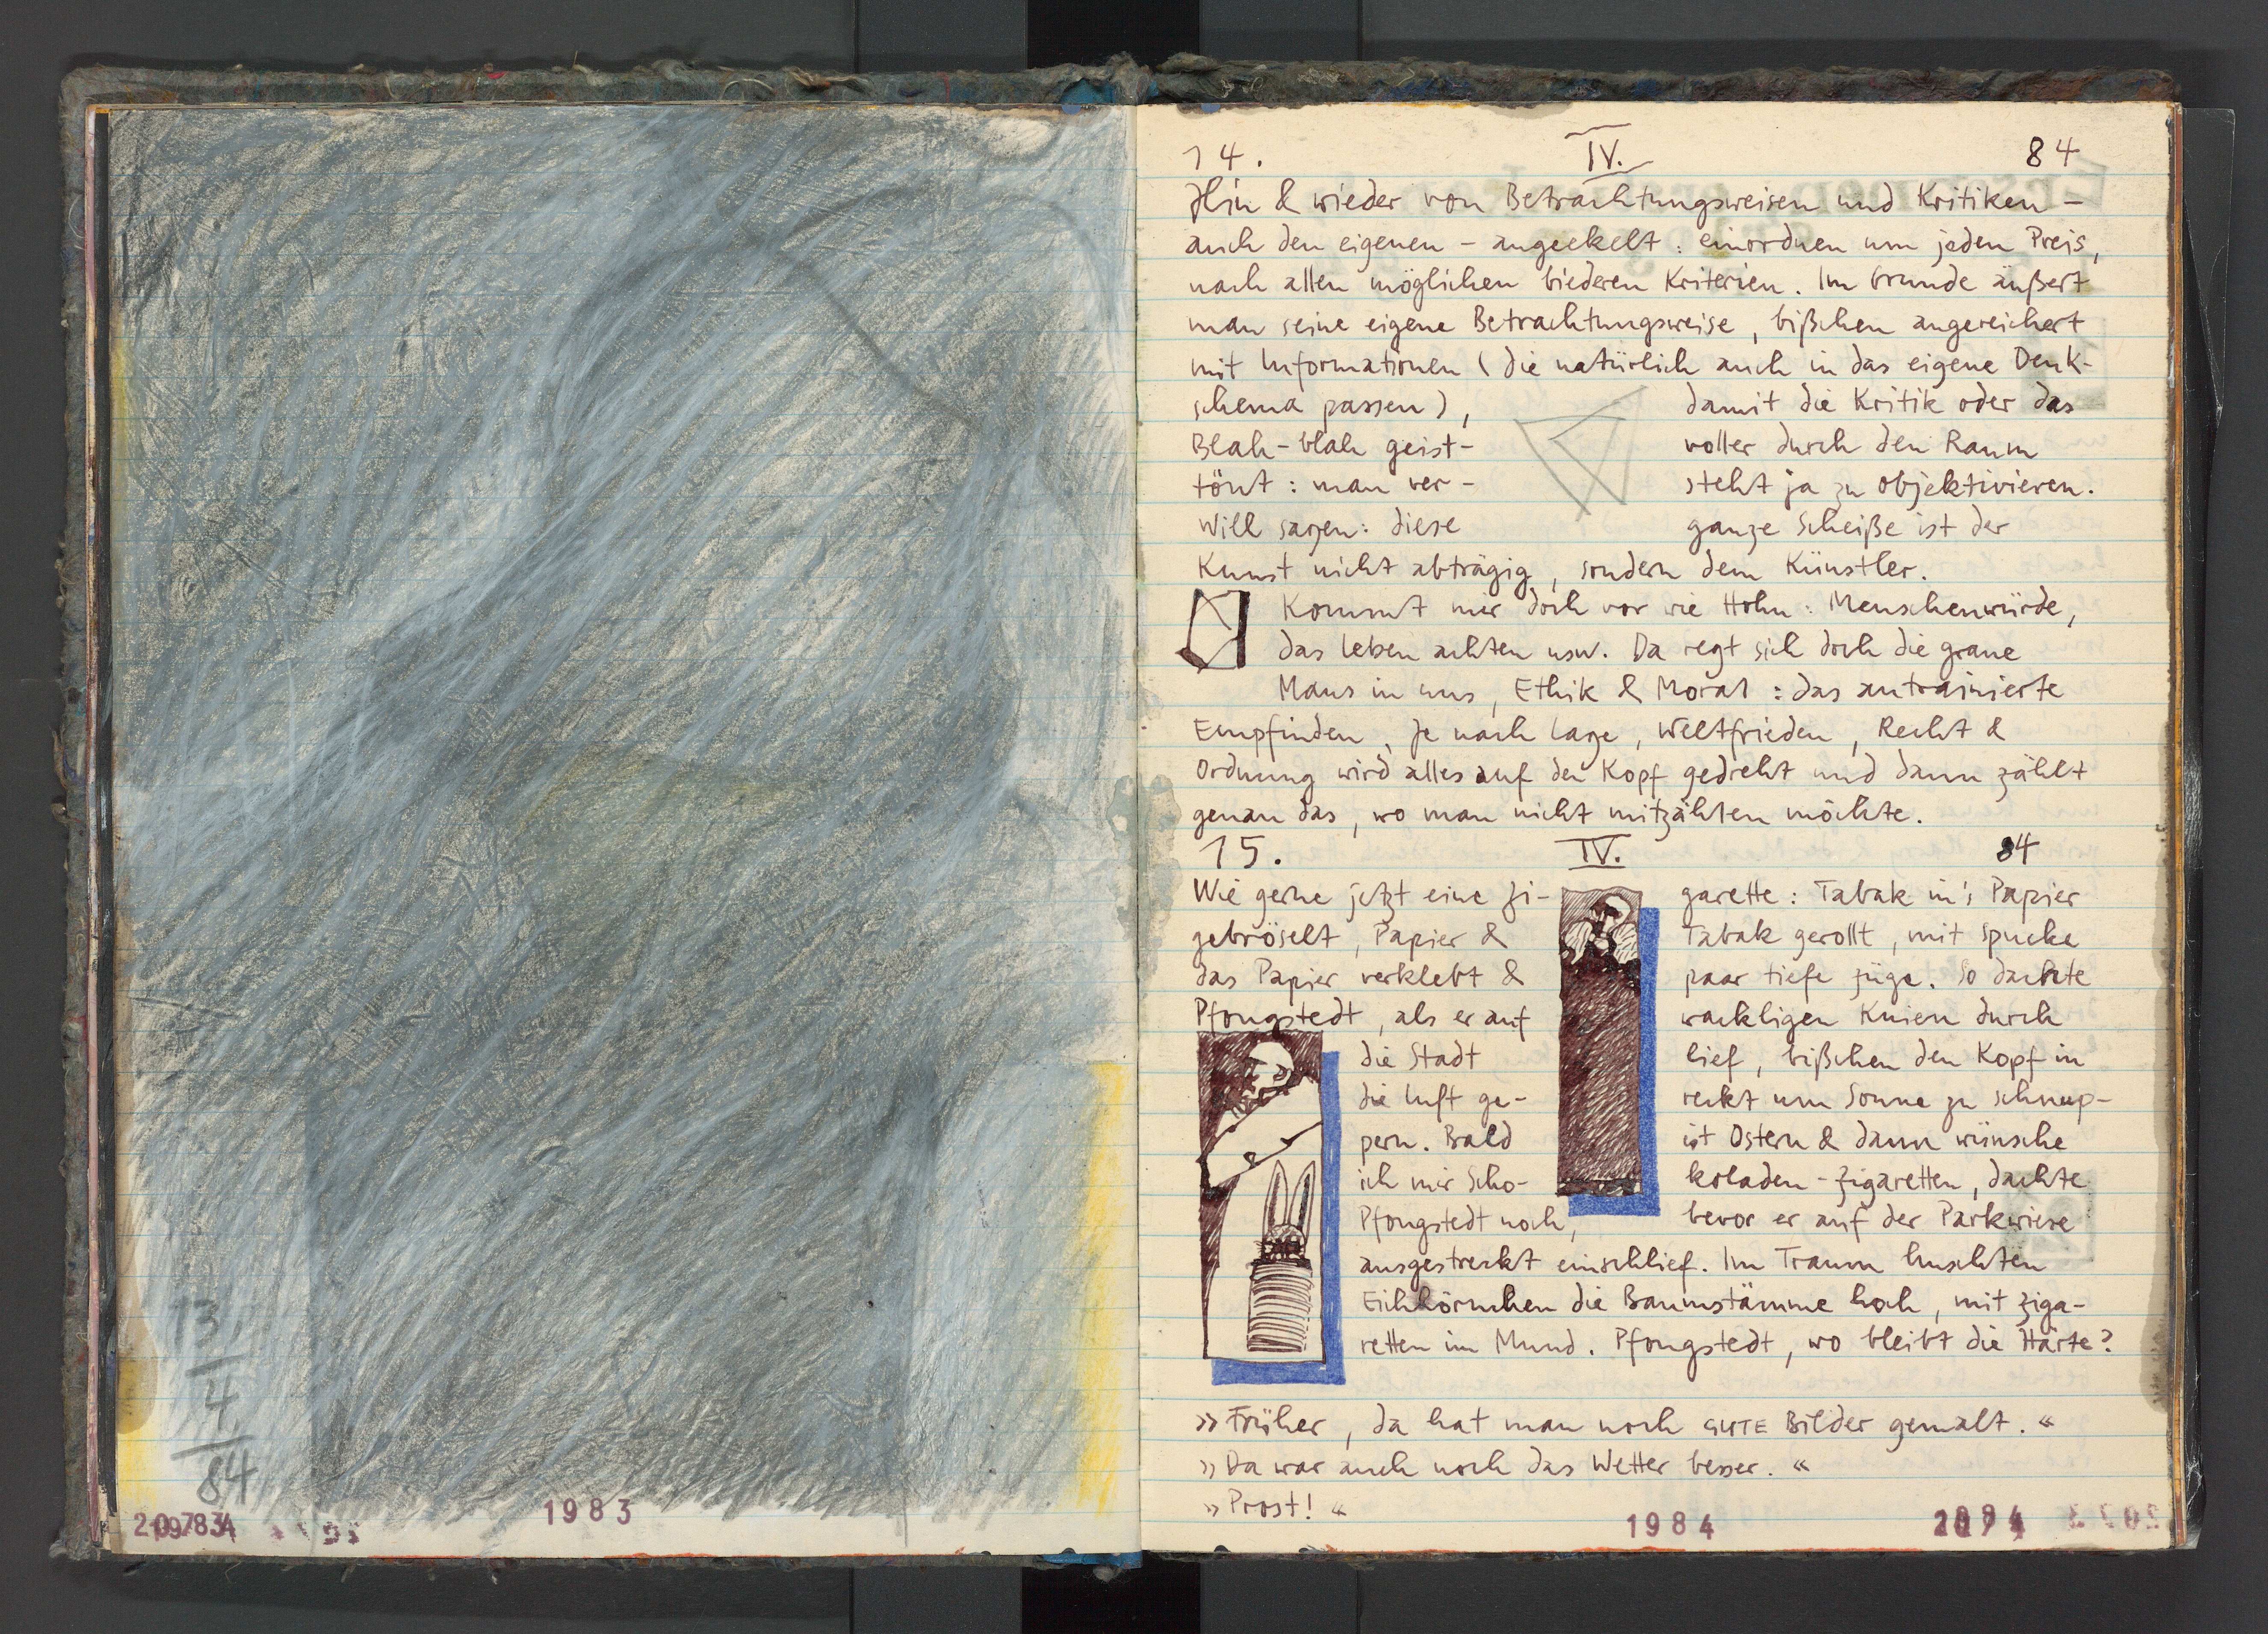 13.
4.
84
1983
14. IV. 84
Hin & wieder von Betrachtungsweisen und Kritiken –
auch den eigenen – angeekelt : einordnen um jeden Preis,
nach allen möglichen biederen Kriterien. Im Grunde äußert
man seine eigene Betrachtungsweise, bißchen angereichert
mit Informationen (die natürlich auch in das eigene Denk-
schema passen), damit die Kritik oder das
Blah-blah geist- voller durch den Raum
tönt : man ver- steht ja zu objektivieren.
Will sagen: diese ganze Scheiße ist der
Kunst nicht abträgig, sondern dem Künstler.
Kommt mir doch vor wie Hohn : Menschenwürde,
das Leben achten usw. Da regt sich doch die graue
Maus in uns, Ethik & Moral : das antrainierte
Empfinden, je nach Lage, Weltfrieden, Recht &
Ordnung wird alles auf den Kopf gedreht und dann zählt
genau das, wo man nicht mitzählen möchte.
15. IV. 84
Wie gerne jetzt eine Zi- garette : Tabak in's Papier
gebröselt, Papier & Tabak gerollt, mit Spucke
das Papier verklebt & paar tiefe Züge. So dachte
Pfongstedt, als er auf wackligen Knien durch
die Stadt lief, bißchen den Kopf in
die Luft ge- reckt um Sonne zu schnup-
pern. Bald ist Ostern & dann wünsche
ich mir Scho- koladen-Zigaretten, dachte
Pfongstedt noch, bevor er auf der Parkwiese
ausgestreckt einschlief. Im Traum huschten
Eichhörnchen die Baumstämme hoch, mit Ziga-
retten im Mund. Pfongstedt, wo bleibt die Härte?
»Früher, da hat man noch GUTE Bilder gemalt.«
»Da war auch noch das Wetter besser.«
»Prost!«
1984